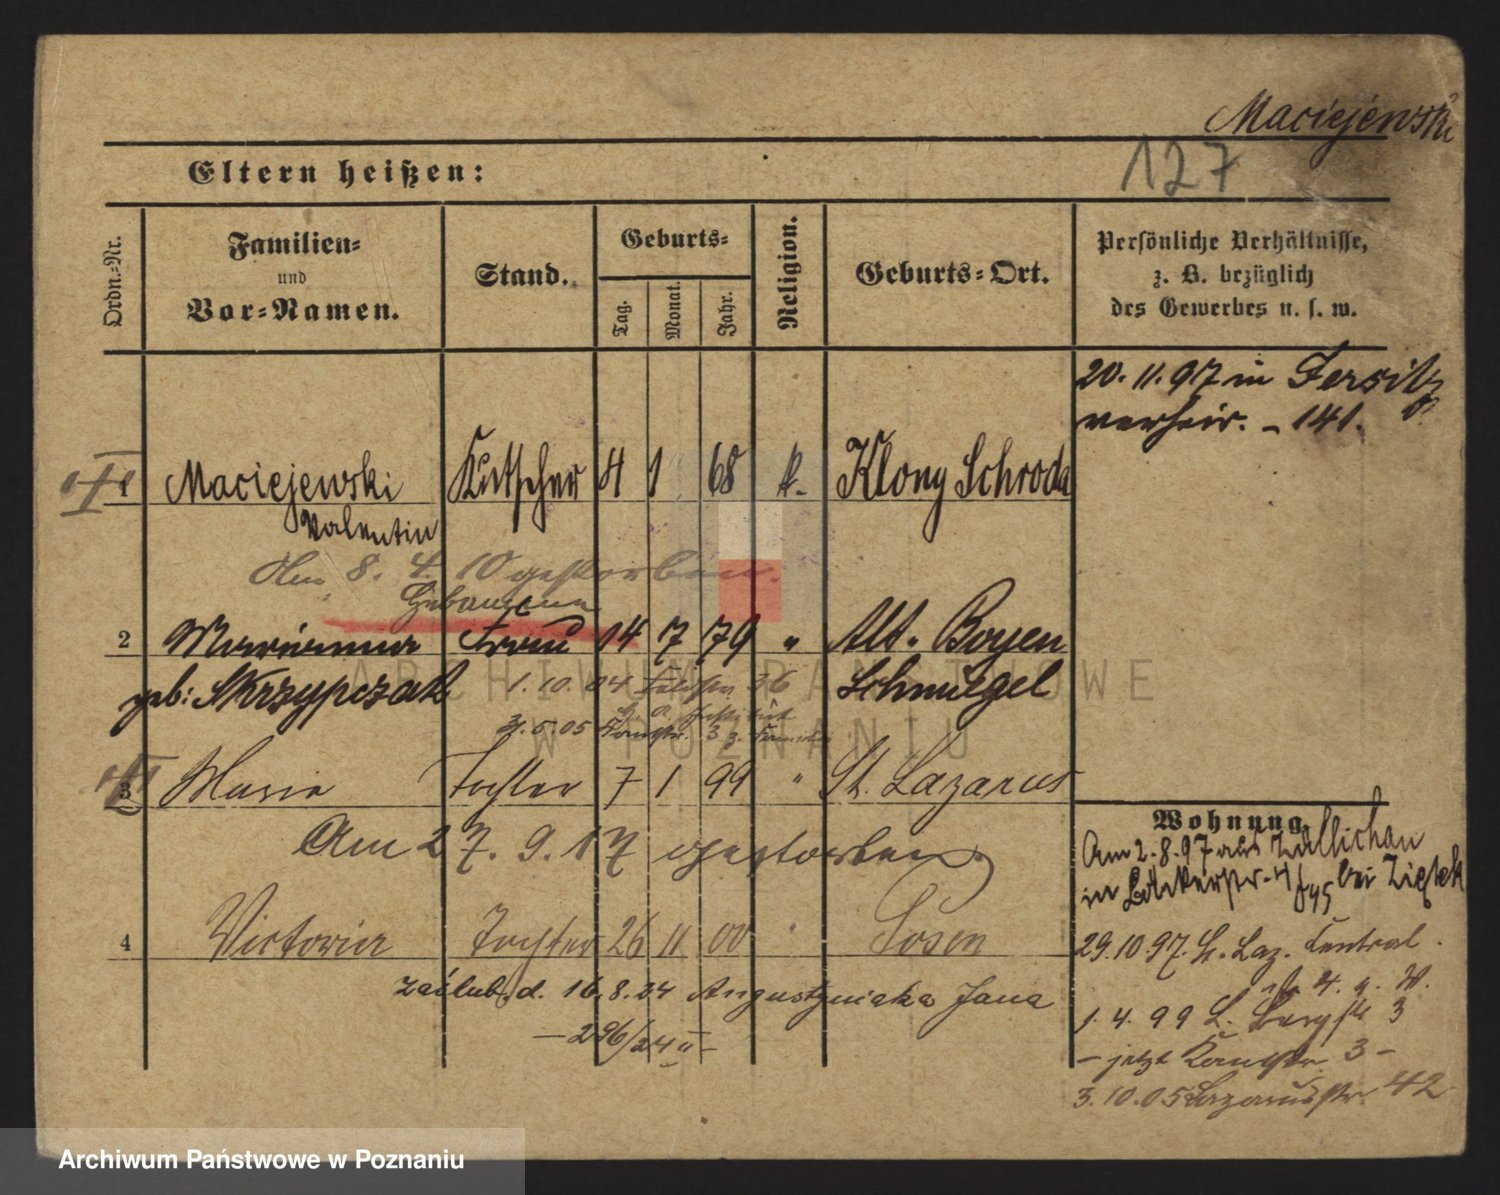 Maciejewski
127
Eltern heißen:
Ordn.-Nr.
Familien-
und
Vor-Namen.
Stand.
Geburts-
Tag.
Monat.
Jahr.
Religion.
Geburts-Ort.
Persönliche Verhältnisse,
z. B. bezüglich
des Gewerbes u. s. w.
20. 11. 97 in Jersitz
verheir. - 141.
1 Maciejewski Kutscher 4 1 68 k. Klony Schroda
Valentin
Am 8. 4. 10 gestorben.
Hebamme
2 Marianna Frau 14 7 79 " Alt-Boyen
geb: Skrzypczak Schmiegel
1. 10. 04 36
3 Maria Tochter 7 1 99 " St. Lazarus
Am 27. 9. 17 gestorben.
4 Victoria Tochter 26 11 00 " Posen
zaślub. d. 16. 8. 24 Augustyniaka Jana
- 296/24 II -
Wohnung.
Am 2. 8. 97 aus Züllichau
in Bäckerstr. bei Ziętek
29. 10 97. St. Laz. Central
str. 4. a. W.
1. 4. 99 L. Bergstr 3
- jetzt Kanalstr. 3 -
3. 10. 05 Lazarusstr. 42
ARCHIWUM PAŃSTWOWE
W POZNANIU
Archiwum Państwowe w Poznaniu